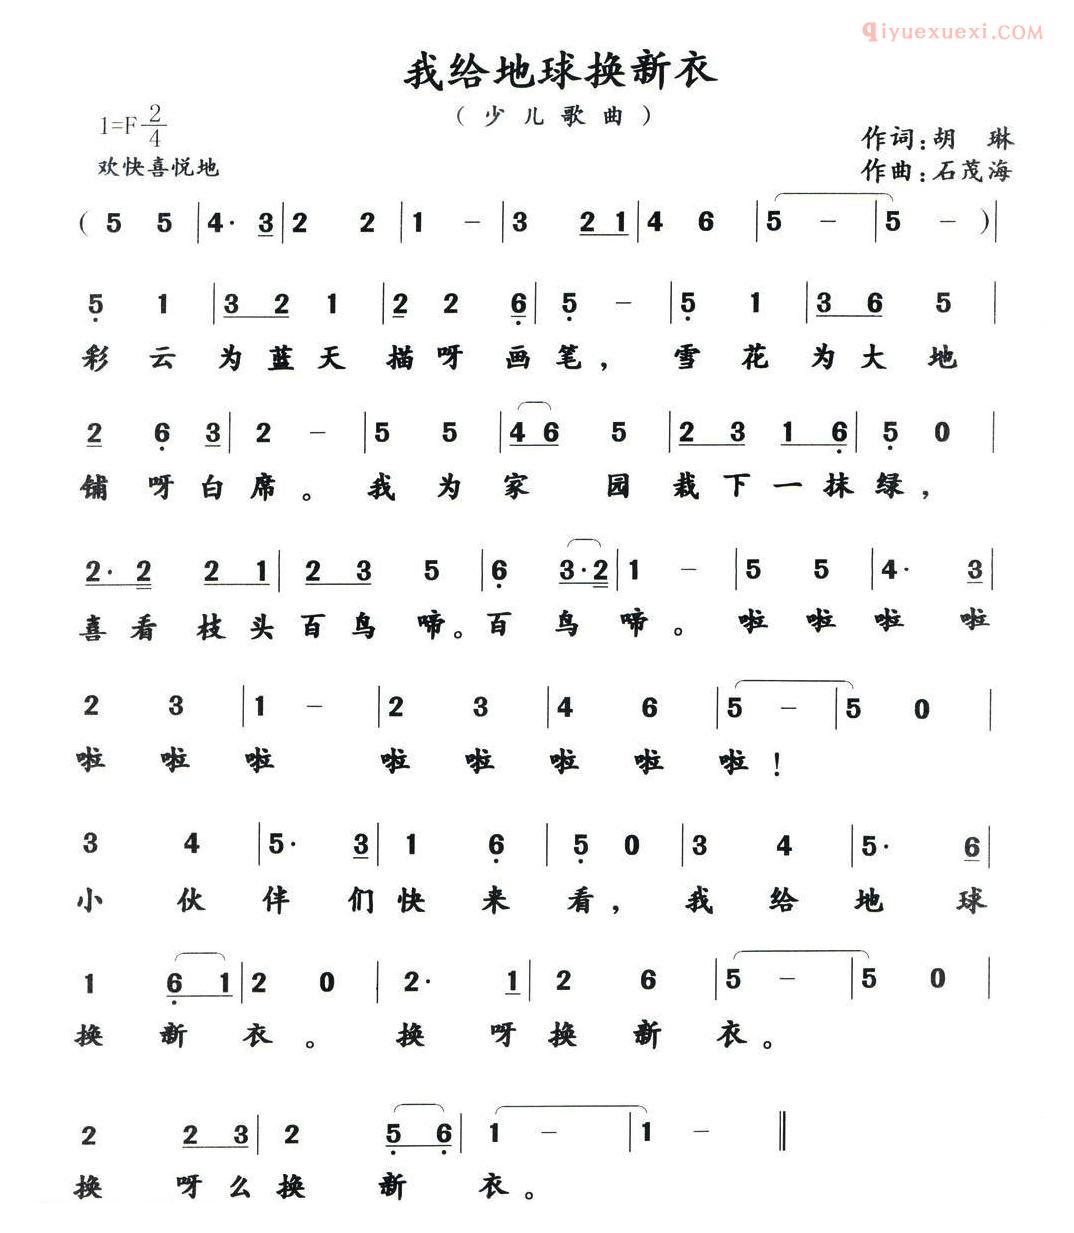 qiyuexuexi.COM
我给地球换新衣
（少儿歌曲）
1=F 2/4
作词：胡 琳
欢快喜悦地
作曲：石茂海
( 5 5 | 4· 3 | 2 2 | 1 － | 3 2 1 | 4 6 | 5 － | 5 － ) |
5 1 | 3 2 1 | 2 2 6 | 5 － | 5 1 | 3 6 5 |
彩云为蓝天描呀画笔，雪花为大地
2 6 3 | 2 － | 5 5 | 4 6 5 | 2 3 1 6 | 5 0 |
铺呀白席。我为家园栽下一抹绿，
2· 2 2 1 | 2 3 5 | 6 3·2 | 1 － | 5 5 | 4· 3 |
喜看枝头百鸟啼。百鸟啼。啦啦啦啦
2 3 | 1 － | 2 3 | 4 6 | 5 － | 5 0 |
啦啦啦 啦啦啦啦啦！
3 4 | 5· 3 | 1 6 | 5 0 | 3 4 | 5· 6 |
小伙伴们快来看，我给地球
1 6 1 | 2 0 | 2· 1 | 2 6 | 5 － | 5 0 |
换新衣。换呀换新衣。
2 2 3 | 2 5 6 | 1 － | 1 － ‖
换呀么换新衣。